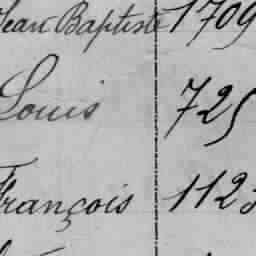 Jean Baptiste 1709
Louis 725
François 112